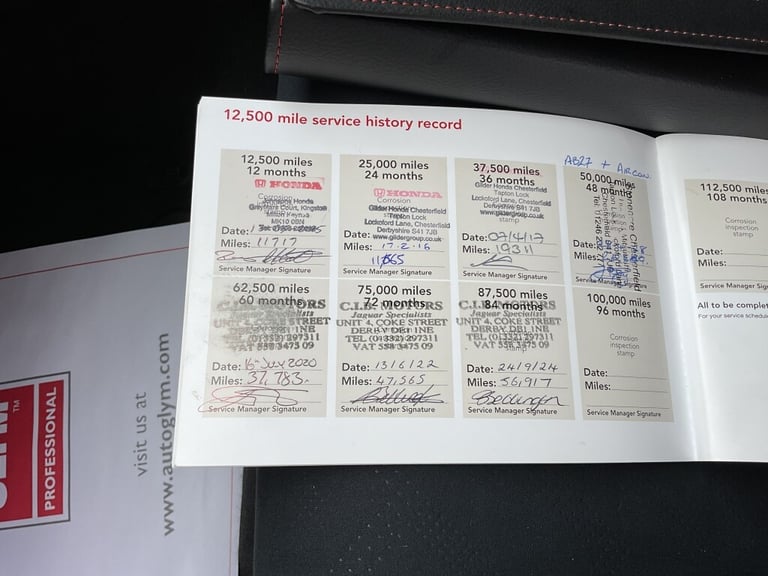 12,500 mile service history record
12,500 miles
12 months
HONDA
Corrosion
Milton Keynes
MK10 0BN
Date:
Miles: 11717
Service Manager Signature
25,000 miles
24 months
HONDA
Corrosion
Gilder Honda Chesterfield
Tapton Lock
Lockoford Lane, Chesterfield
Derbyshire S41 7JB
www.gildergroup.co.uk
Date: 17.2.16
Miles:
Service Manager Signature
37,500 miles
36 months
Gilder Honda Chesterfield
Tapton Lock
Lockoford Lane, Chesterfield
Derbyshire S41 7JB
www.gildergroup.co.uk
stamp
Date:
Miles: 19311
Service Manager Signature
AB27 + AIRCON
50,000 miles
48 months
Date:
Miles:
Service Manager Signature
62,500 miles
60 months
C.L.B. MOTORS
Jaguar Specialists
UNIT 4, COKE STREET
DERBY DE1 1NE
TEL (01332) 297311
VAT 558 3475 09
Date: 16th July 2020
Miles: 37,783.
Service Manager Signature
75,000 miles
72 months
C.L.B. MOTORS
Jaguar Specialists
UNIT 4, COKE STREET
DERBY DE1 1NE
TEL (01332) 297311
VAT 558 3475 09
Date: 13/6/22
Miles: 47,565
Service Manager Signature
87,500 miles
84 months
C.L.B. MOTORS
Jaguar Specialists
UNIT 4, COKE STREET
DERBY DE1 1NE
TEL (01332) 297311
VAT 558 3475 09
Date: 24/9/24
Miles: 56,917
Service Manager Signature
100,000 miles
96 months
Corrosion
inspection
stamp
Date:
Miles:
Service Manager Signature
112,500 miles
108 months
Corrosion
inspection
stamp
Date:
Miles:
Service Manager
All to be
For your service
PROFESSIONAL
TM
visit us at
www.autoglym.com